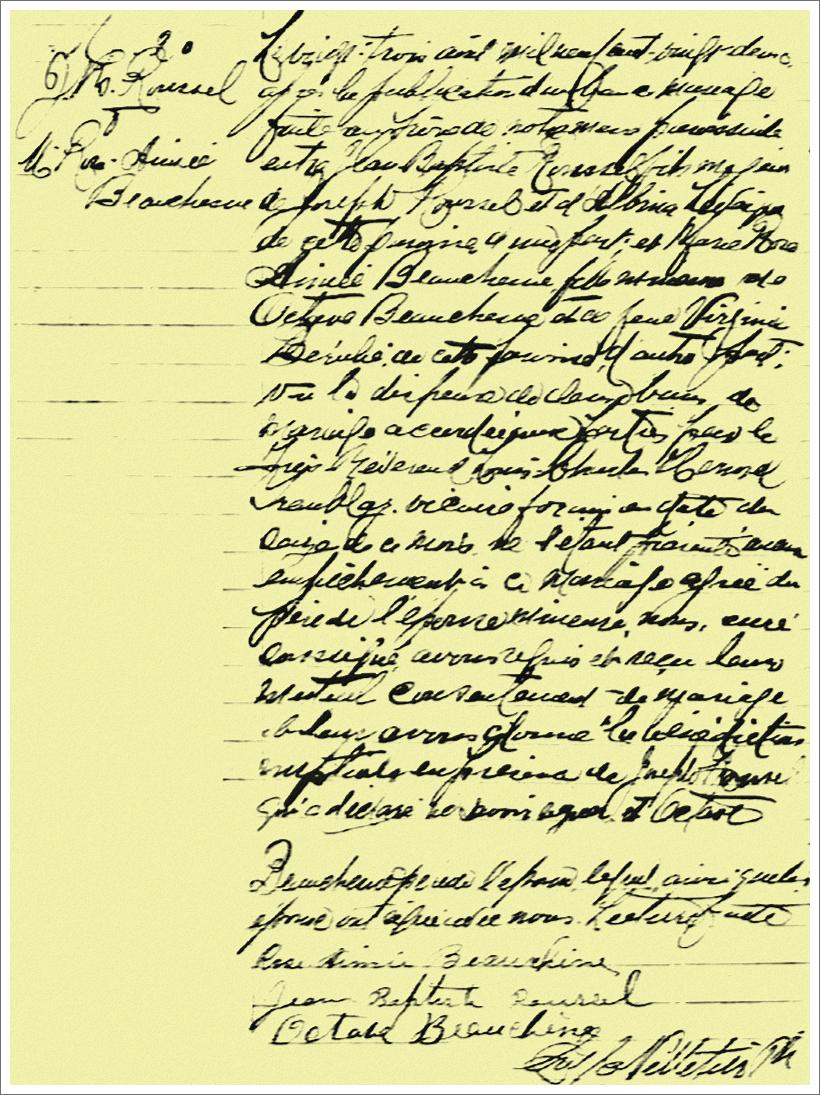 J. Bte. Roussel
M. Rose-Aimée
Beauchesne
Le vingt-trois avril mil neuf cent-vingt-deux
après la publication d'un ban de mariage
faite au prône de notre messe paroissiale
entre Jean Baptiste Roussel fils majeur
de Joseph Roussel et d'Albina
de cette paroisse d'une part; et Marie Rose
Aimée Beauchesne, fille mineure de
Octave Beauchesne et de feue Virginie
Bérubé, de cette paroisse, d'autre part;
vu la dispense de deux bans de
mariage accordée aux parties par le
Très Révérend Louis Charles
vicaire forain en date du
de ce mois, ne s'étant trouvé aucun
empêchement à ce mariage agréé du
père de l'épouse mineure, nous, curé
soussigné, avons requis et reçu leur
mutuel consentement de mariage
et leur avons donné la bénédiction
nuptiale en présence de Joseph Roussel
qui a déclaré ne savoir signer, et Octave
Beauchesne père de l'épouse, lequel, ainsi que les
époux ont signé avec nous. Lecture faite
Rose Aimée Beauchesne
Jean Baptiste Roussel
Octave Beauchesne
Pelletier Ptre